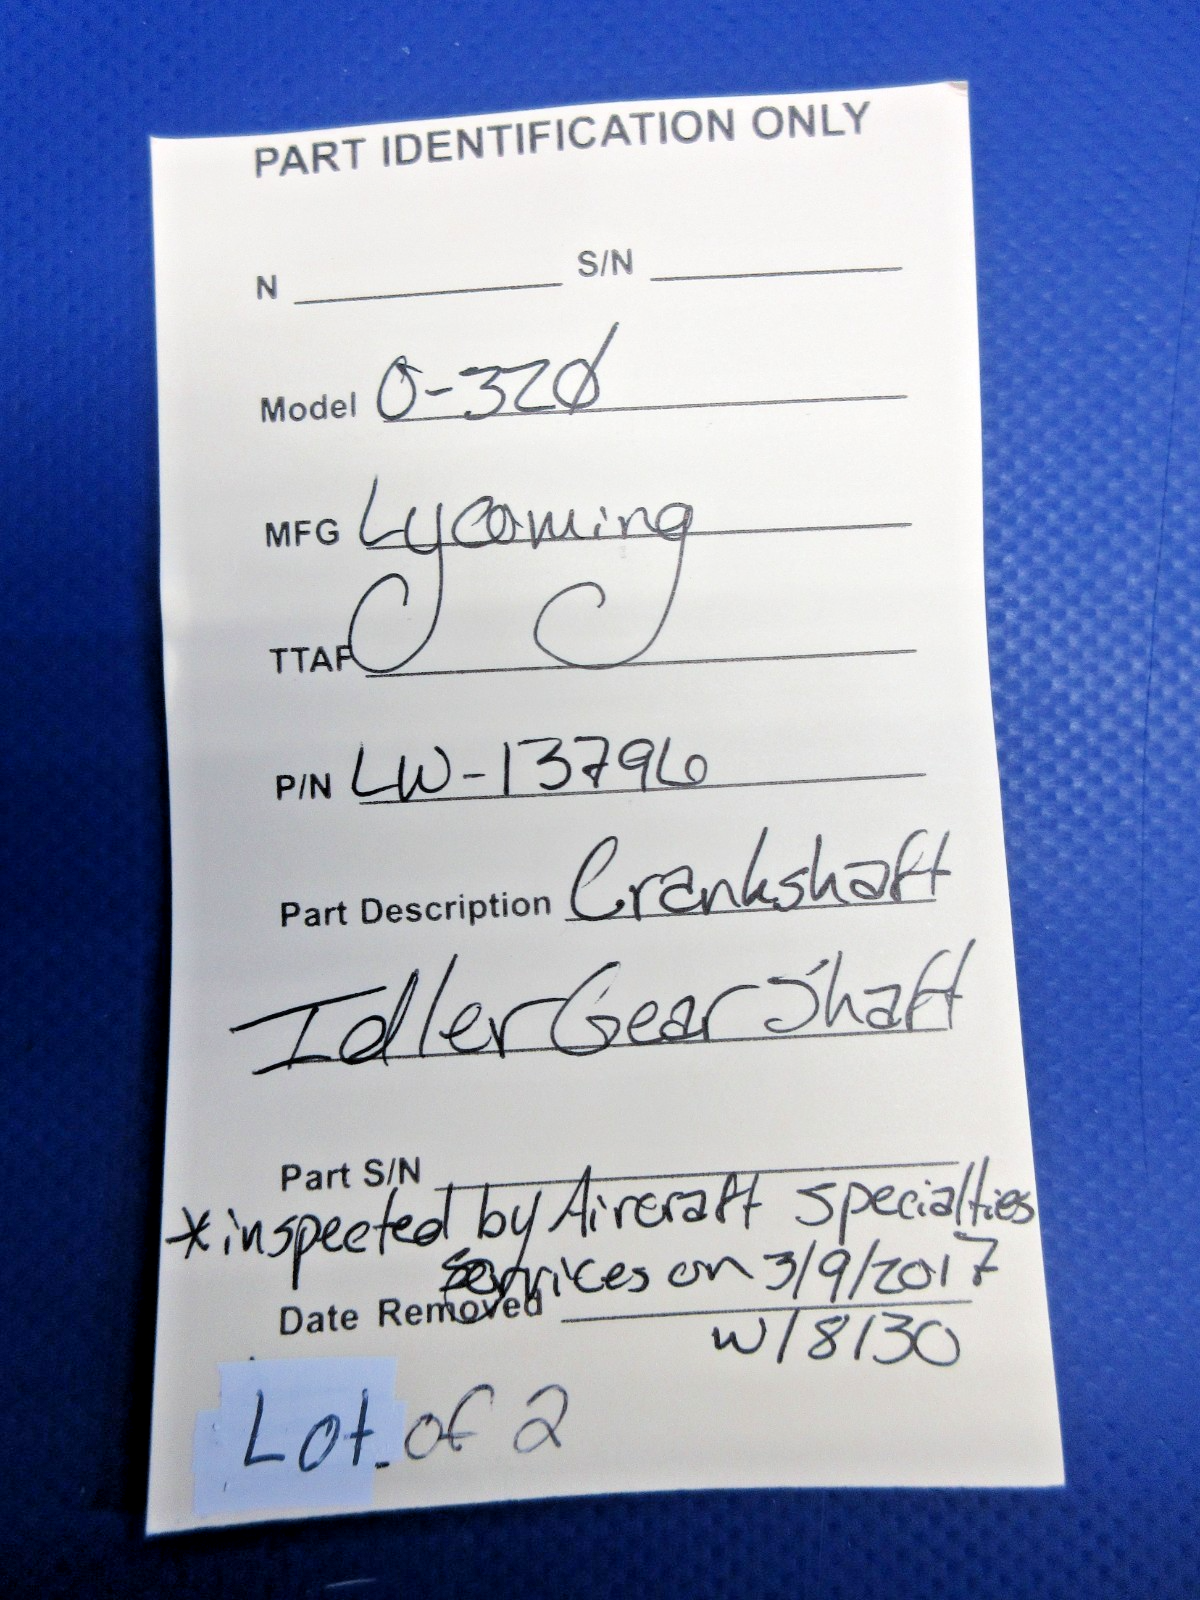 PART IDENTIFICATION ONLY
N S/N
Model O-320
MFG Lycoming
TTAF
P/N LW-13796
Part Description Crankshaft
Idler Gear Shaft
Part S/N
*inspected by Aircraft Specialties
Services on 3/9/2017
Date Removed
w/8130
Lot of 2